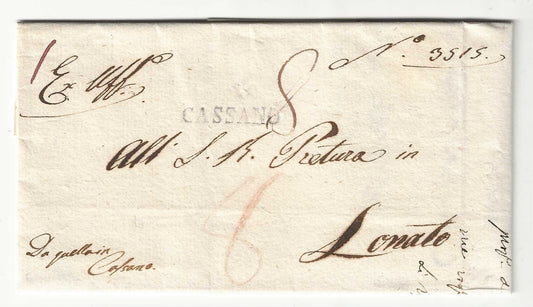 Ex Uff.º
Nº 3515.
8
CASSANO
All' I. R. Pretura in
8
Lonato
Da quella in
Cassano.